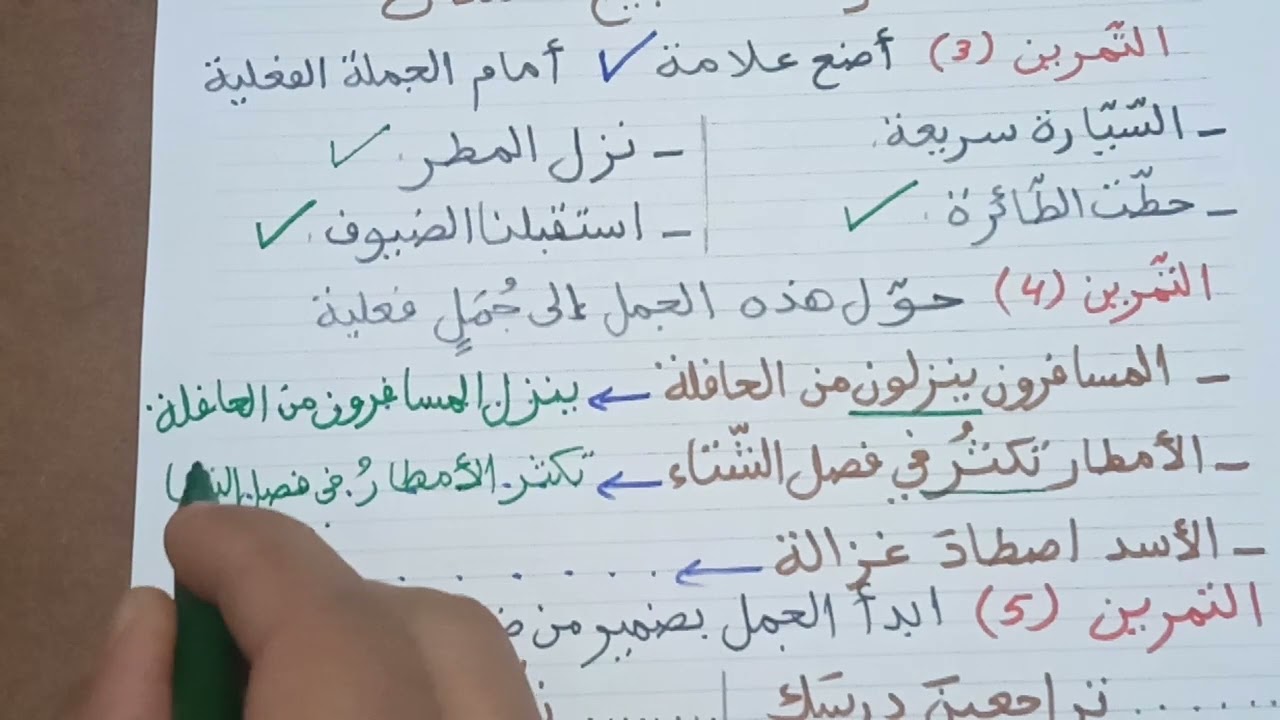 التّمرين (3) أضع علامة ✓ أمام الجملة الفعلية
- السّيّارة سريعة. - نزل المطر. ✓
- حطّت الطّائرة. ✓ - استقبلنا الضيوف. ✓
التّمرين (4) حوّل هذه الجمل إلى جُمَلٍ فعلية
- المسافرون ينزلون من الحافلة ← ينزل المسافرون من الحافلة.
- الأمطار تكثرُ في فصل الشّتاء ← تكثر الأمطارُ في فصل
- الأسد اصطادَ غزالة ← . . . . . . .
التمرين (5) ابدأ الجمل بضمير من
...... تراجعين درسَك